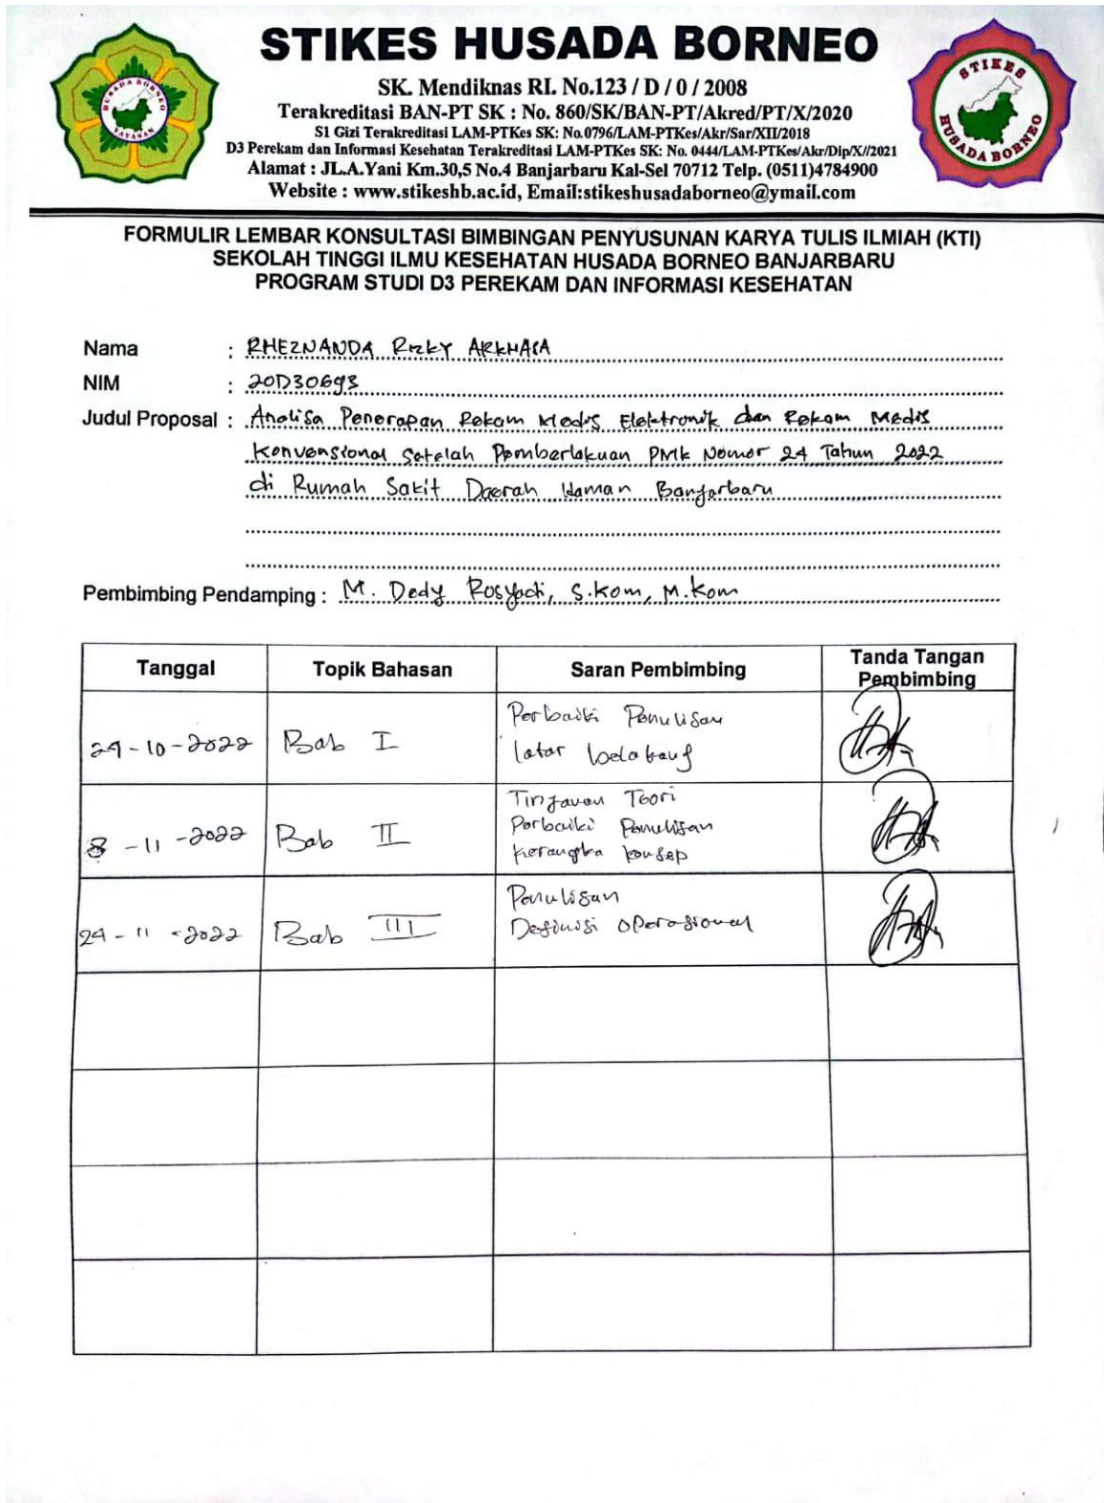 STIKES HUSADA BORNEO
SK. Mendiknas RI. No.123 / D / 0 / 2008
Terakreditasi BAN-PT SK : No. 860/SK/BAN-PT/Akred/PT/X/2020
S1 Gizi Terakreditasi LAM-PTKes SK: No.0796/LAM-PTKes/Akr/Sar/XII/2018
D3 Perekam dan Informasi Kesehatan Terakreditasi LAM-PTKes SK: No. 0444/LAM-PTKes/Akr/Dip/X//2021
Alamat : JL.A.Yani Km.30,5 No.4 Banjarbaru Kal-Sel 70712 Telp. (0511)4784900
Website : www.stikeshb.ac.id, Email:stikeshusadaborneo@ymail.com
HUSADA BORNEO
YAYASAN
STIKES
HUSADA BORNEO
FORMULIR LEMBAR KONSULTASI BIMBINGAN PENYUSUNAN KARYA TULIS ILMIAH (KTI)
SEKOLAH TINGGI ILMU KESEHATAN HUSADA BORNEO BANJARBARU
PROGRAM STUDI D3 PEREKAM DAN INFORMASI KESEHATAN
Nama : RHEZNANDA RIZKY ARKHASA
NIM : 20D30693
Judul Proposal : Analisa Penerapan Rekam Medis Elektronik dan Rekam Medis
Konvensional Setelah Pemberlakuan PMK Nomor 24 Tahun 2022
di Rumah Sakit Daerah Idaman Banjarbaru
Pembimbing Pendamping : M. Dedy Rosyadi, S.Kom, M.Kom
Tanggal Topik Bahasan Saran Pembimbing Tanda Tangan Pembimbing
29-10-2022 Bab I Perbaiki Penulisan
latar belakang
8 -11 -2022 Bab II Tinjauan Teori
Perbaiki Penulisan
Kerangka konsep
29-11-2022 Bab III Penulisan
Definisi Operasional